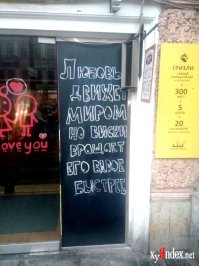 Любовь
движет
миром
но виски
вращает
его вдвое
быстрее
love you
ГРИЗЛИ
300
5
20
XyIndex.net